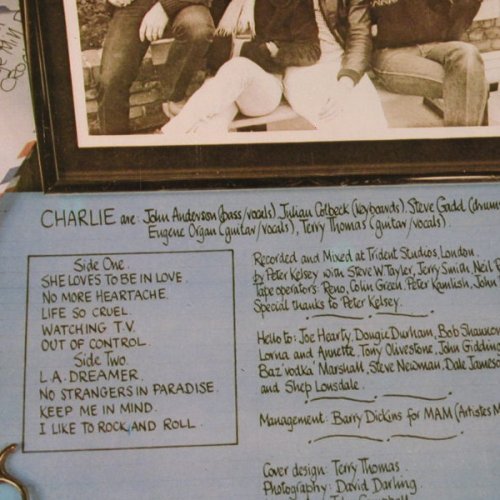 CHARLIE are: John Anderson (bass/vocals), Julian Colbeck (keyboards), Steve Gadd (drums
Eugene Organ (guitar/vocals), Terry Thomas (guitar/vocals).
Side One.
SHE LOVES TO BE IN LOVE.
NO MORE HEARTACHE.
LIFE SO CRUEL.
WATCHING T.V.
OUT OF CONTROL.
Side Two.
L.A. DREAMER.
NO STRANGERS IN PARADISE.
KEEP ME IN MIND.
I LIKE TO ROCK AND ROLL.
Recorded and Mixed at Trident Studios, London.
by Peter Kelsey with Steve W. Taylor, Jerry Smith, Neil
Tape operators: Reno, Colin Green, Peter Kamlish, John
Special thanks to Peter Kelsey.
Hello to: Joe Hearty, Dougie Durham, Bob
Lorna and Annette, Tony Olivestone, John
Baz'vodka' Marshall, Steve Newman, Dale
and Shep Lonsdale.
Management: Barry Dickins for MAM (Artistes
Cover design: Terry Thomas.
Photography: David Darling.